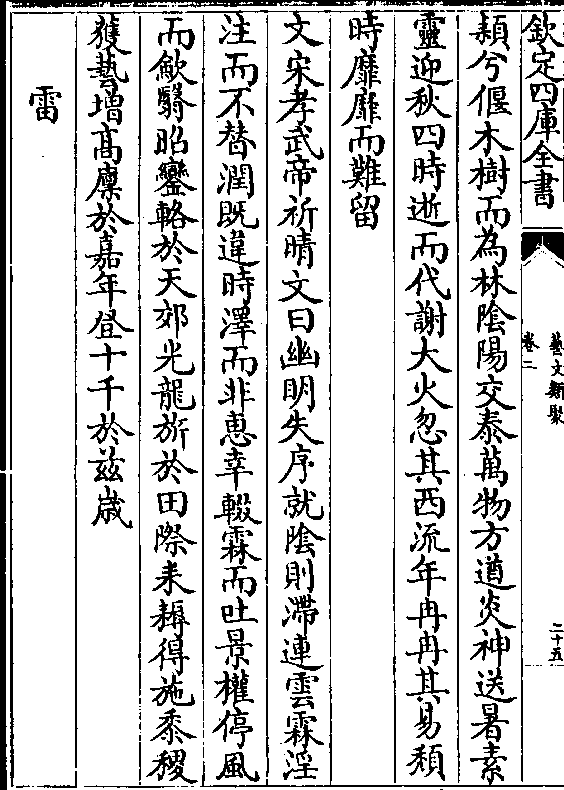 欽定四庫全書
藝文類聚
卷二
二十五
頽兮偃木樹而為林陰陽交泰萬物方遒炎神送暑素
靈迎秋四時逝而代謝大火忽其西流年冉冉其易頽
時靡靡而難留
文宋孝武帝祈晴文曰幽明失序就陰則滯連雲霖淫
注而不替潤既違時澤而非恵幸輟霖而吐景權停風
而歛翳昭鑾輅於天郊光龍旂於田際耒耨得施黍稷
獲藝增髙廪於嘉年昼十千於兹歳
雷